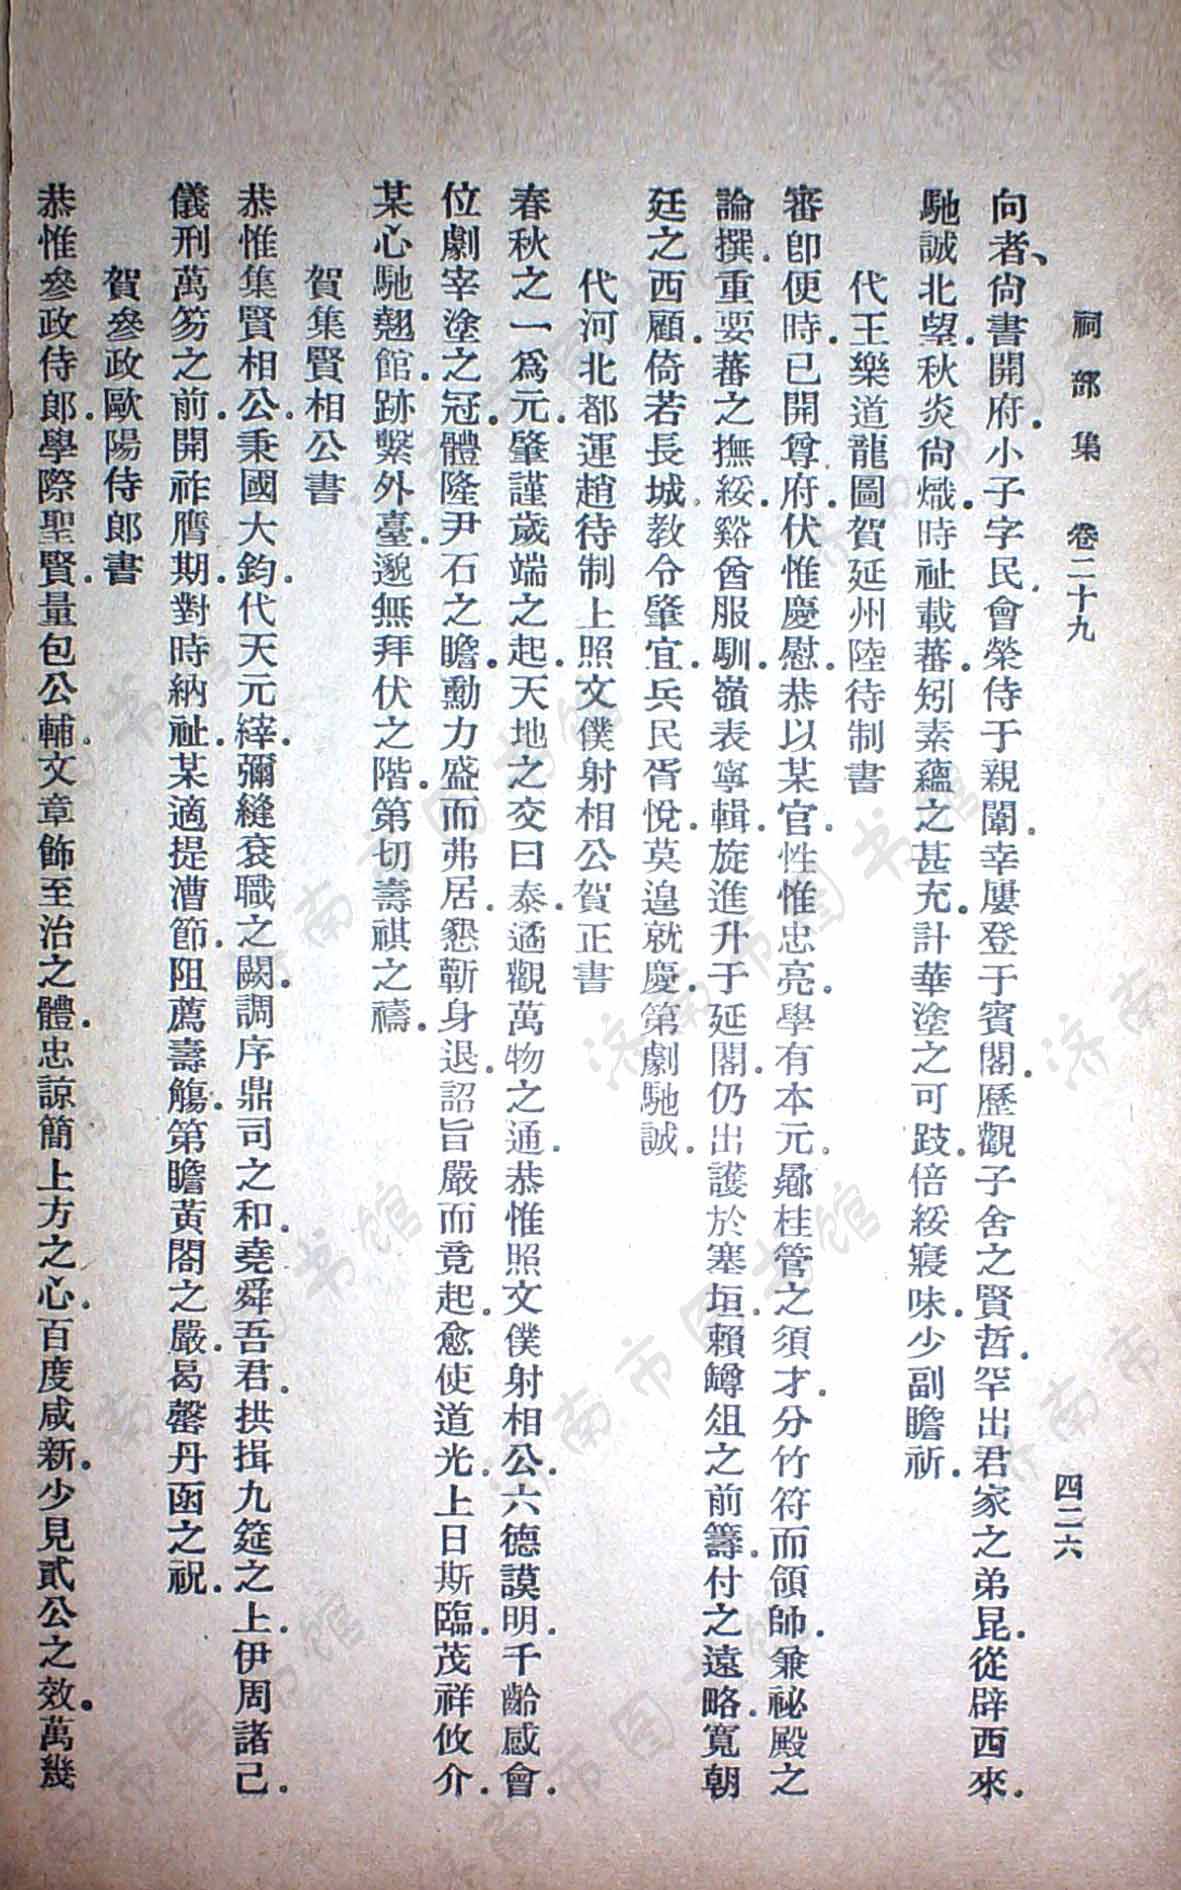 祠部集 卷二十九 四二六
向者、尙書開府.小子字民.會榮侍于親闈.幸屢登于賓閣.歷觀子舍之賢哲.罕出君家之弟昆.從辟西來.
馳誠北望.秋炎尙熾.時祉載蕃.矧素蘊之甚充.計華塗之可跂.倍綏寢味.少副瞻祈.
代王樂道龍圖賀延州陸待制書
審卽便時.已開尊府.伏惟慶慰.恭以某官.性惟忠亮.學有本元.曏桂管之須才.分竹符而領師.兼祕殿之
論撰.重要蕃之撫綏.谿酋服馴.嶺表寧輯.旋進升于延閣.仍出護於塞垣.賴罇俎之前籌.付之遠略.寬朝
廷之西顧.倚若長城.教令肇宜.兵民胥悅.莫遑就慶.第劇馳誠.
代河北都運趙待制上照文僕射相公賀正書
春秋之一爲元.肇謹歲端之起.天地之交曰泰.遹觀萬物之通.恭惟照文僕射相公.六德謨明.千齡感會.
位劇宰塗之冠.體隆尹石之瞻.勳力盛而弗居.懇蘄身退.詔旨嚴而竟起.愈使道光.上日斯臨.茂祥攸介.
某心馳翹館.跡繫外臺.邈無拜伏之階.第切壽祺之禱.
賀集賢相公書
恭惟集賢相公.秉國大鈞.代天元緈.彌縫袞職之闕.調序鼎司之和.堯舜吾君.拱揖九筵之上.伊周諸己.
儀刑萬笏之前.開祚膺期.對時納祉.某適提漕節.阻薦壽觴.第瞻黃閣之嚴.曷罄丹函之祝.
賀參政歐陽侍郎書
恭惟參政侍郎.學際聖賢.量包公輔.文章飾至治之體.忠諒簡上方之心.百度咸新.少見貳公之效.萬幾